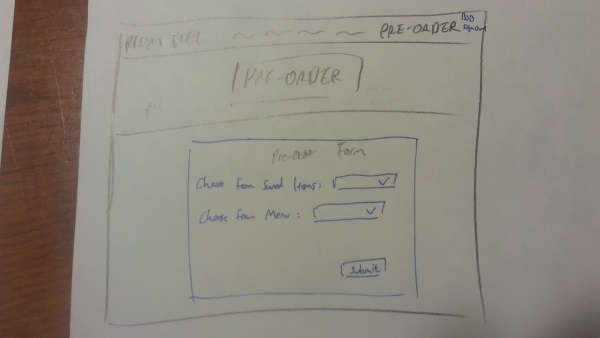 PRE-ORDER
PRE-ORDER
Pre-order Form
Choose from Saved Items:
Choose From Menu:
Submit